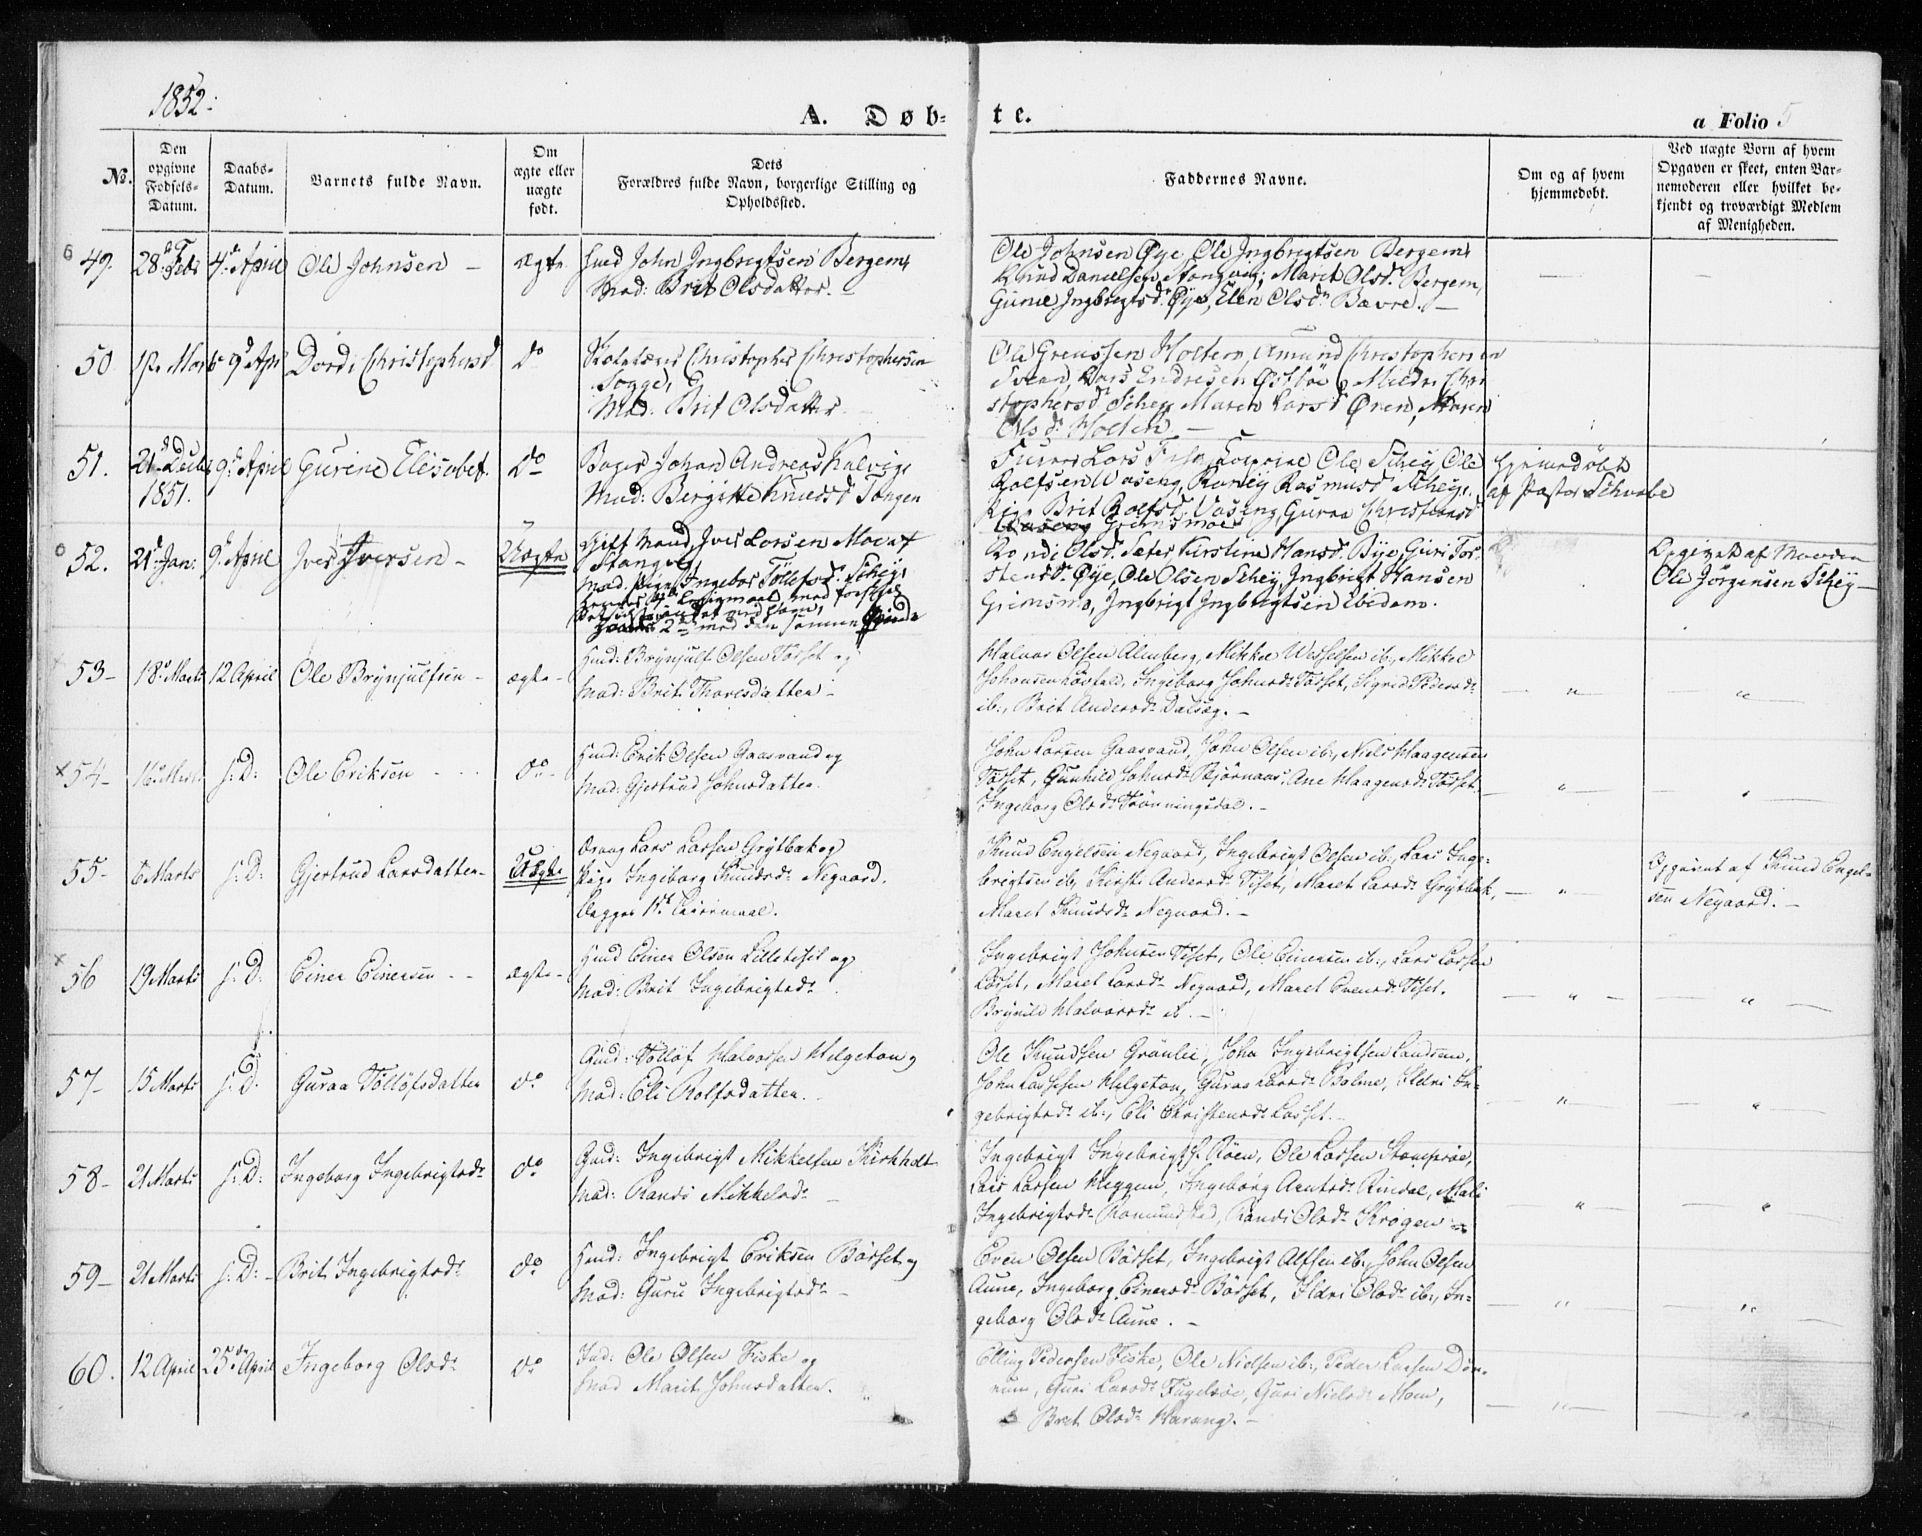 1852.
A. Døb- te.
a Folio 5
No.
Den opgivne Fødsels-Datum.
Daabs-Datum.
Barnets fulde Navn.
Om ægte eller uægte født.
Dets Forældres fulde Navn, borgerlige Stilling og Opholdssted.
Faddernes Navne.
Om og af hvem hjemmedøbt.
Ved uægte Børn af hvem Opgaven er skeet, enten Barnemoderen eller hvilket bekjendt og troværdigt Medlem af Menigheden.
49. 28d Feb 4d April Ole Johnsen – ægte
Gmd John Ingbrigtsen Bergem,
Mad: Brit Olsdatter. –
Ole Johnsen Øye, Ole Ingbrigtsen Bergem,
Knud Danielsen Stangvig, Marit Olsd. Bergem,
Gurie Ingbrigtsd. Øye, Elen Olsdr Bævre. –
50 Mar 9d Apr Dordi Christophersd Do
Skolelærer Christopher Christophersen
Sogge,
Mad: Brit Olsdatter
Ole Holten, Amund Christophersen
Svean, Lars Endresen Østbøe, Mildri Chri
stophersd Schey, Maren Larsd Øren, Maren
Olsd. Holten –
51. 21d Decbr 1851. 9d April Gurine Elisabet Do
Bager Johan Andreas Halvigs
Mad: Bergitte Knudsd Tangen
Lars Ole Schey, Ole
Rolfsen Waseng, Rasmusd Schey,
Pige Brit Rolfsd. Vaseng, Guraa Christiansd
Grimsmoe
Hjemmedøbt
af Pastor Schwabe
52. 21d Jan: 9d April Iver Iversen – Uægte
Gift Mand Iver Larsen Moen af
Stangvig,
Mad. Pige Ingebor Tøllefsd. Schey,
2den med den samme Qvinde
Randi Olsd. Sæter, Kirstine Hansd. Bye, Guri Tor
stensd. Øye, Ole Olsen Schey, Ingbrigt Hansen
Grimsmo, Ingbrigt Ingbrigtsen ibidem.
Opgivet af
Ole Jörgensen Schey –
53 – 18d Marts 12 April Ole Brynjulfsen – ægte –
Gmd: Brynjulf Olsen Tørset og
Mad: Brit Thoresdatter –
Halvor Olsen Almberg, Mikkel Wesselsen ib., Mikkel
Johansen Løvfald, Ingeborg Johnsdr Tørset, Sigrid Pedersdr
ib:, Brit Andersdr Dalsæg. –
× 54 – Marts s: D: Ole Eriksen do –
Gmd: Erik Olsen Gaasvand og
Mad: Gjertrud Johnsdatter.
John Larsen Gaasvand, John Olsen ib:, Niels Haagensen
Tørset, Gunhild Johnsdr Bjørnaas, Ane Haagensdr Tørset.
Ingeborg Olsdr Trönningsdal. –
55 – 6 Marts s: D: Gjertrud Larsdatter – Uægte
Lars Larsen Grytbak og
Pige Ingeborg Knudsdr Negaard.
Begges 1ste Leiermaal.
Knud Engelsen Negaard, Ingebrigt Olsen ib:, Lars Inge-
brigtsen ib, Kirsti Andersdr Tiset, Maret Larsdr Grytbak,
Maret Knudsdr Negaard. –
Opgivet af Knud Engel-
sen Negaard. –
× 56 19 Marts s: D: Einer Einersen – ægte –
Gmd Einer Olsen Lilletiset og
Mad: Brit Ingebrigtsdr
Ingebrigt Johnsen Tiset, Ole Einersen ib:, Lars Larsen
Løset, Maret Larsdr Negaard, Maret Evensdr Tiset.
Brynild Halvorsdr ib. –
57 – 15 Marts s: D: Guraa Tölløfsdatter do
Gmd: Tølløf Halvorsen Helgeton og
Mad: Eli Rolfsdatter.
Ole Knudsen Grönlie, John Ingebrigtsen Landsem,
John Larsen Helgeton, Guraa Larsdr Bolme, Ildri In-
gebrigtsdr ib:, Eli Christensdr Løset –
58 – 21 Marts s: D: Ingeborg Ingebrigtsdr do
Gmd: Ingebrigt Mikkelsen Kirkholt
Mad: Randi Mikkelsdr –
Ingebrigt Ingebrigts. Röen, Ole Larsen Stomprøe,
Lars Larsen Heggem, Ingeborg Arntsdr Rindal, Mali
Ingebrigtsdr Romundstad, Randi Olsdr Krogen
59 – 21 Marts s: D: Brit Ingebrigtsdr do
Gmd: Ingebrigt Eriksen Börset og
Mad: Guru Ingebrigtsdr –
Even Olsen Börset, Ingebrigt Alfsen ib:, John Olsen
Aune, Ingeborg Einersdr Börset, Ildri Olsdr ib:, In-
geborg Olsdr Aune. –
60. 12 April 25de April Ingeborg Olsdr do
Ole Olsen Fiske og
Mad Marit Johnsdatter.
Elling Pedersen Fiske, Ole Nielsen ib:, Peder Larsen Dön-
num, Guri Larsdr Fugelsøe, Guri Nielsdr Moen,
Brit Olsdr Harang. –